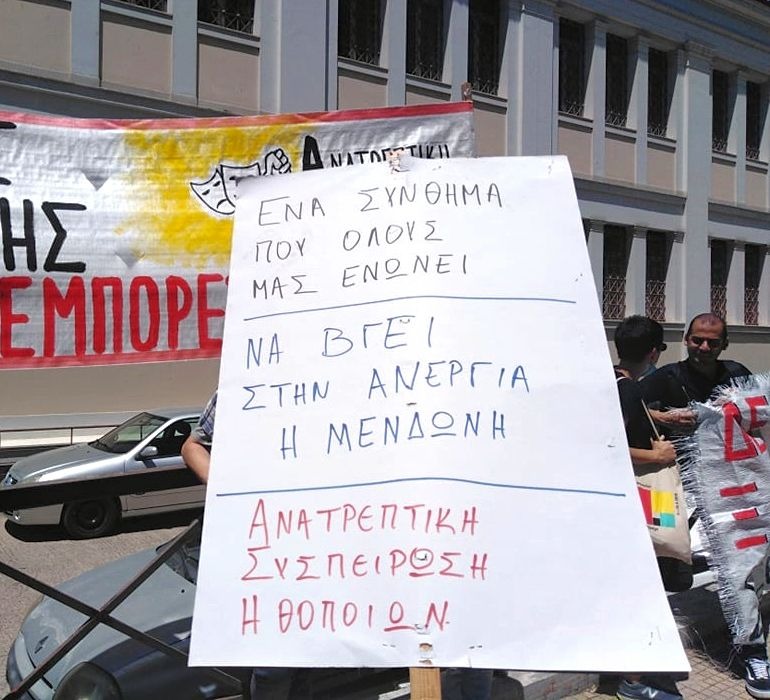 ΑΝΑΤΡΕΠΤΙΚΗ
ΗΣ
ΕΝΑ ΣΥΝΘΗΜΑ
ΠΟΥ ΟΛΟΥΣ
ΜΑΣ ΕΝΩΝΕΙ
ΝΑ ΒΓΕΙ
ΣΤΗΝ ΑΝΕΡΓΙΑ
Η ΜΕΝΔΩΝΗ
ΑΝΑΤΡΕΠΤΙΚΗ
ΣΥΣΠΕΙΡΩΣΗ
ΗΘΟΠΟΙΩΝ